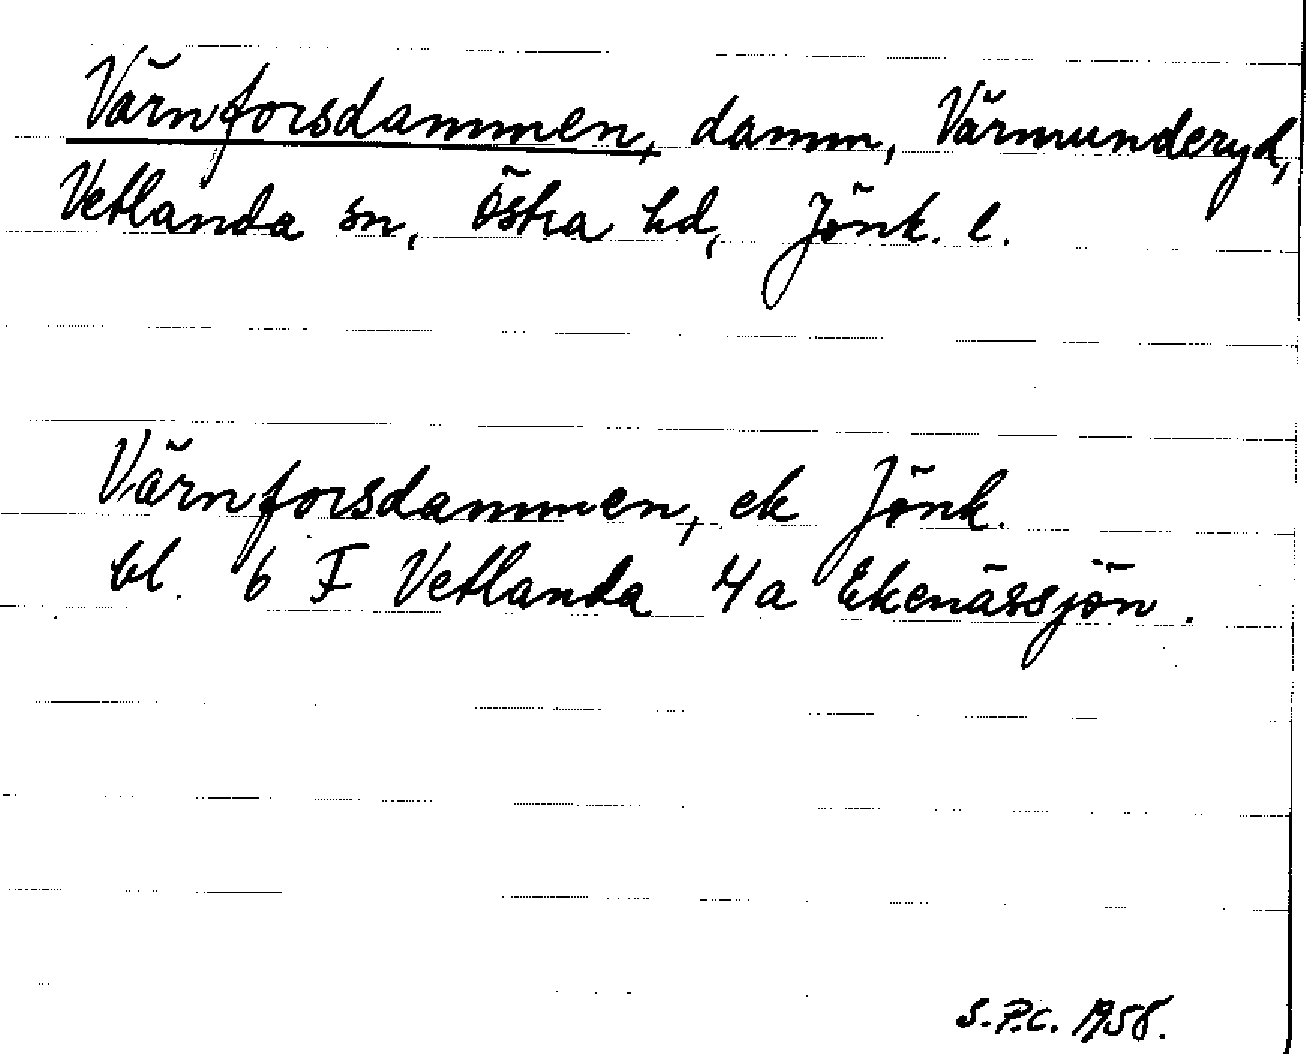 Värnforsdammen, damm, Värmunderyd,
Vetlanda sn, Östra hd, Jönk. l.
Värnforsdammen, ek Jönk.
bl. 6 F Vetlanda 4a Ekenässjön.
S.P.C. 1958.